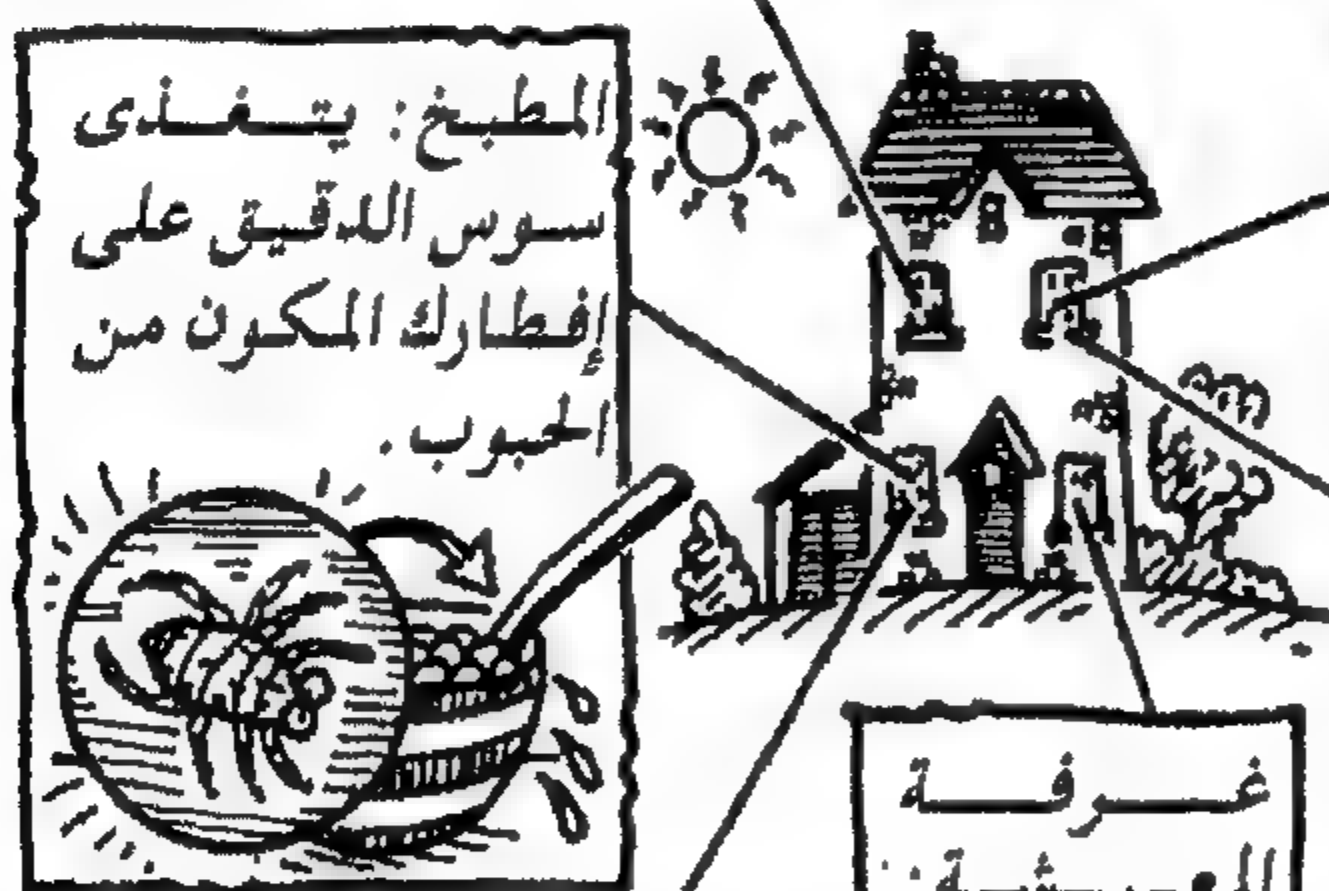 المطبخ: يتغذى
سوس الدقيق على
إفطارك المكون من
الحبوب.
غرفة